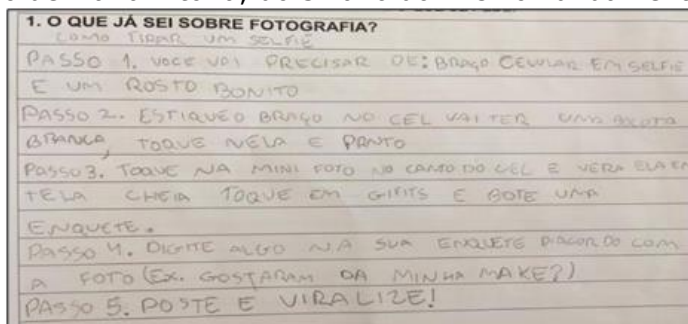 1. O QUE JÁ SEI SOBRE FOTOGRAFIA?
COMO TIRAR UM SELFIE
PASSO 1. VOCE VAI PRECISAR DE: BRAÇO CELULAR EM SELFIE
E UM ROSTO BONITO
PASSO 2. ESTIQUE O BRAÇO NO CEL VAI TER UMA
BRANCA, TOQUE NELA E PRONTO
PASSO 3. TOQUE NA MINI FOTO NO CANTO DO CEL E VERA ELA EM
TELA CHEIA TOQUE EM GIFITS E BOTE UMA
ENQUETE.
PASSO 4. DIGITE ALGO NA SUA ENQUETE DIACORDO COM
A FOTO (EX. GOSTARAM DA MINHA MAKE?)
PASSO 5. POSTE E VIRALIZE!